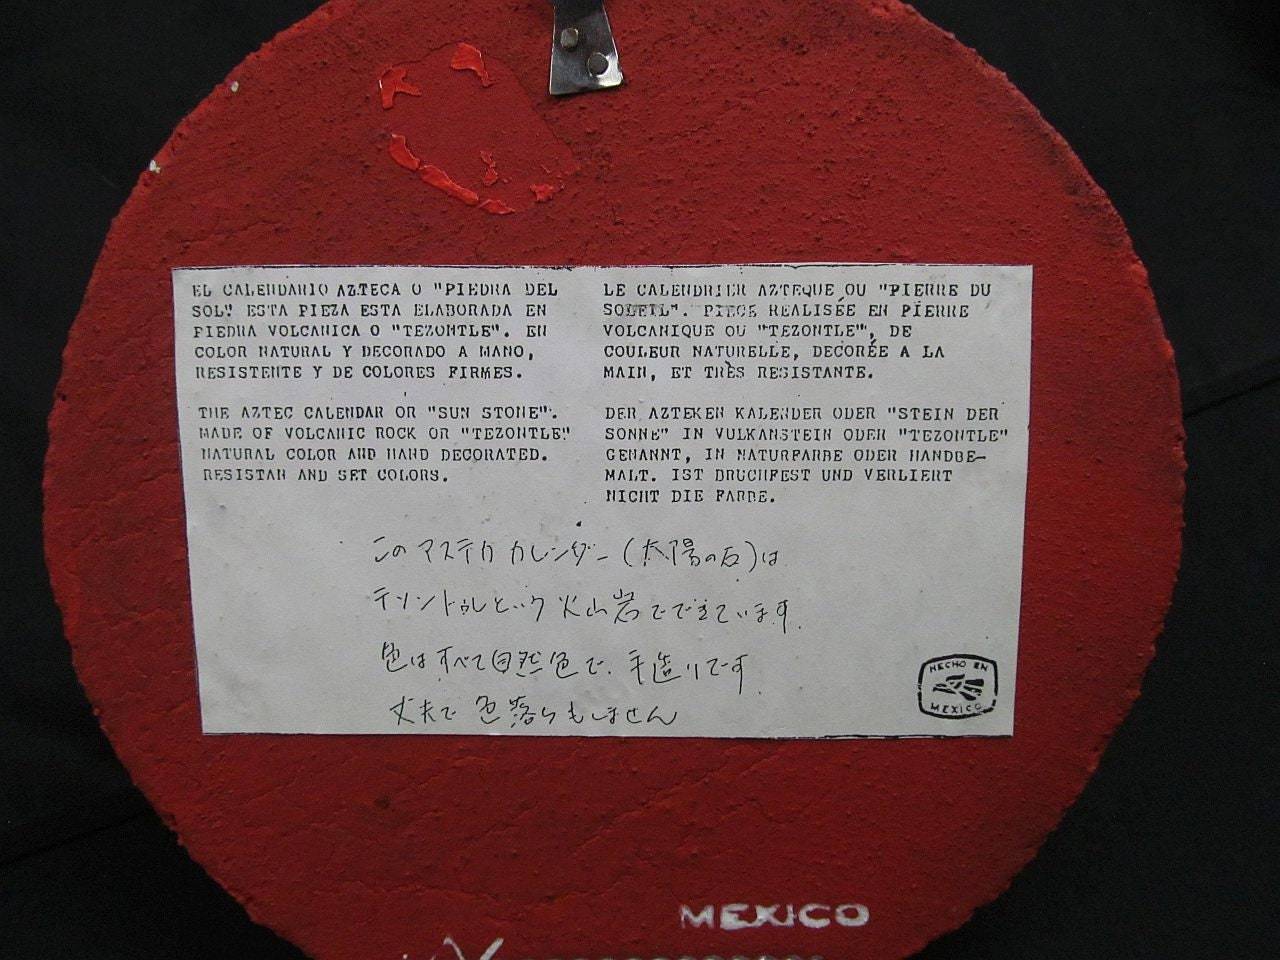 EL CALENDARIO AZTECA O "PIEDRA DEL
SOL" ESTA PIEZA ESTA ELABORADA EN
PIEDRA VOLCANICA O "TEZONTLE". EN
COLOR NATURAL Y DECORADO A MANO,
RESISTENTE Y DE COLORES FIRMES.
THE AZTEC CALENDAR OR "SUN STONE".
MADE OF VOLCANIC ROCK OR "TEZONTLE"
NATURAL COLOR AND HAND DECORATED.
RESISTAN AND SET COLORS.
LE CALENDRIER AZTEQUE OU "PIERRE DU
SOLEIL". PIECE REALISÉE EN PIERRE
VOLCANIQUE OU "TEZONTLE", DE
COULEUR NATURELLE, DECORÉE A LA
MAIN, ET TRÈS RESISTANTE.
DER AZTEKEN KALENDER ODER "STEIN DER
SONNE" IN VULKANSTEIN ODER "TEZONTLE"
GENANNT, IN NATURFARBE ODER HANDBE-
MALT. IST BRUCHFEST UND VERLIERT
NICHT DIE FARBE.
このアステカカレンダー(太陽の石)は
テソントゥレという火山岩でできています.
色はすべて自然色で、手造りです.
丈夫で色落ちもしません
HECHO EN
MEXICO
MEXICO